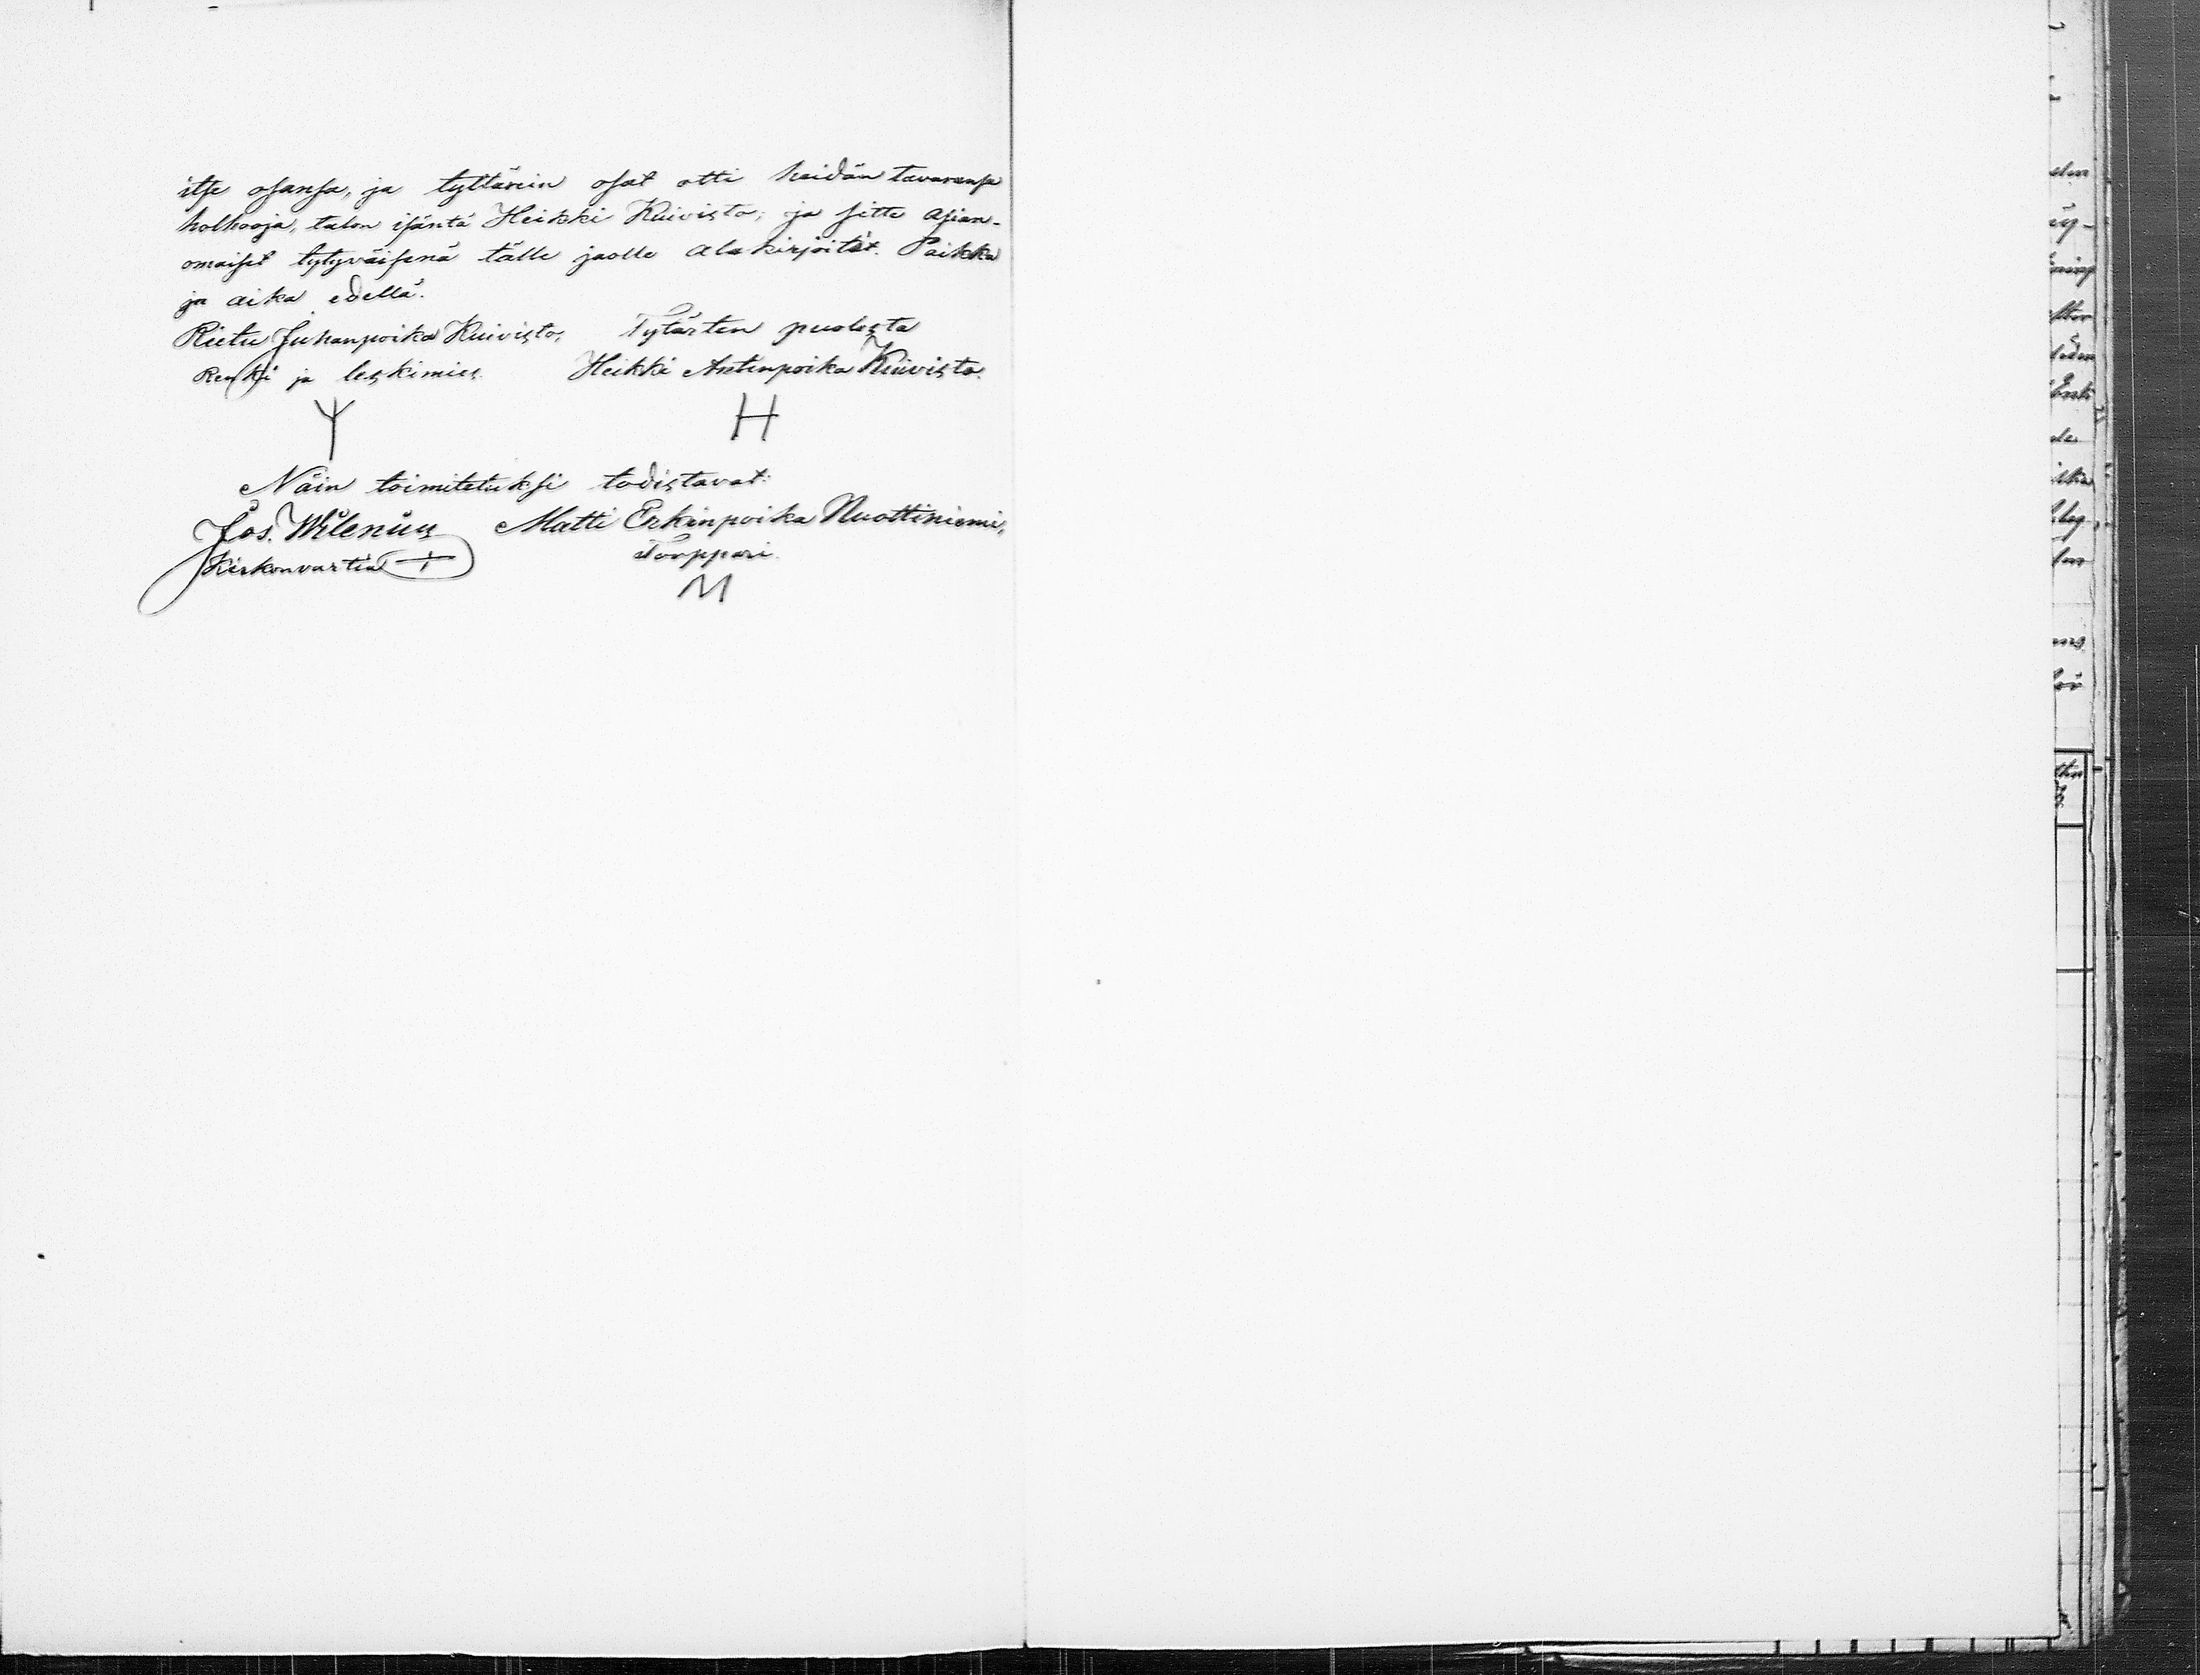 itse osansa, ja tyttärein osat otti heidän tavaransa
holhooja, talon isäntä Heikki Kuivisto; ja sitte asian-
omaiset tytyväisenä tälle jaolle alakirjoitit. Paikka
ja aika edellä.
Rietu Juhanpoika Kuivisto, Tytärten puolesta
Renki ja leskimies. Heikki Antinpoika Kuivisto.
H
Näin toimitetuksi todistavat:
Jos. Wilenius Matti Erkinpoika Nuottiniemi,
Kirkonvartia Torppari.
M